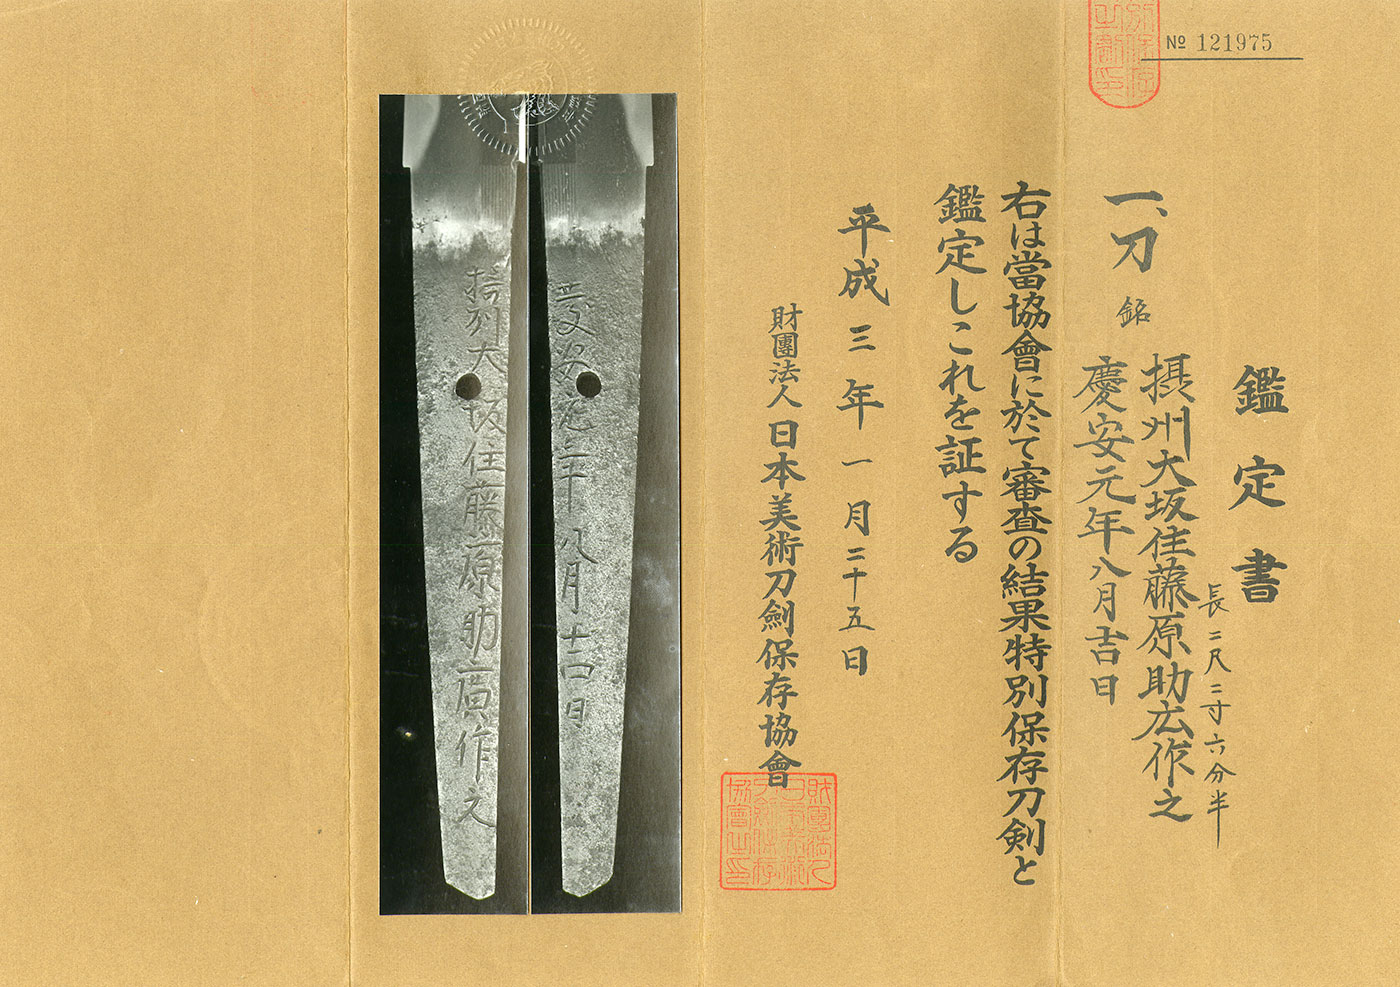 № 121975
鑑定書
長二尺二寸六分半
一、刀 銘
摂州大坂住藤原助広作之
慶安元年八月吉日
右は當協會に於て審査の結果特別保存刀剣と
鑑定しこれを証する
平成三年一月二十五日
財團法人日本美術刀劍保存協會
慶安元年八月吉日
摂州大坂住藤原助廣作之